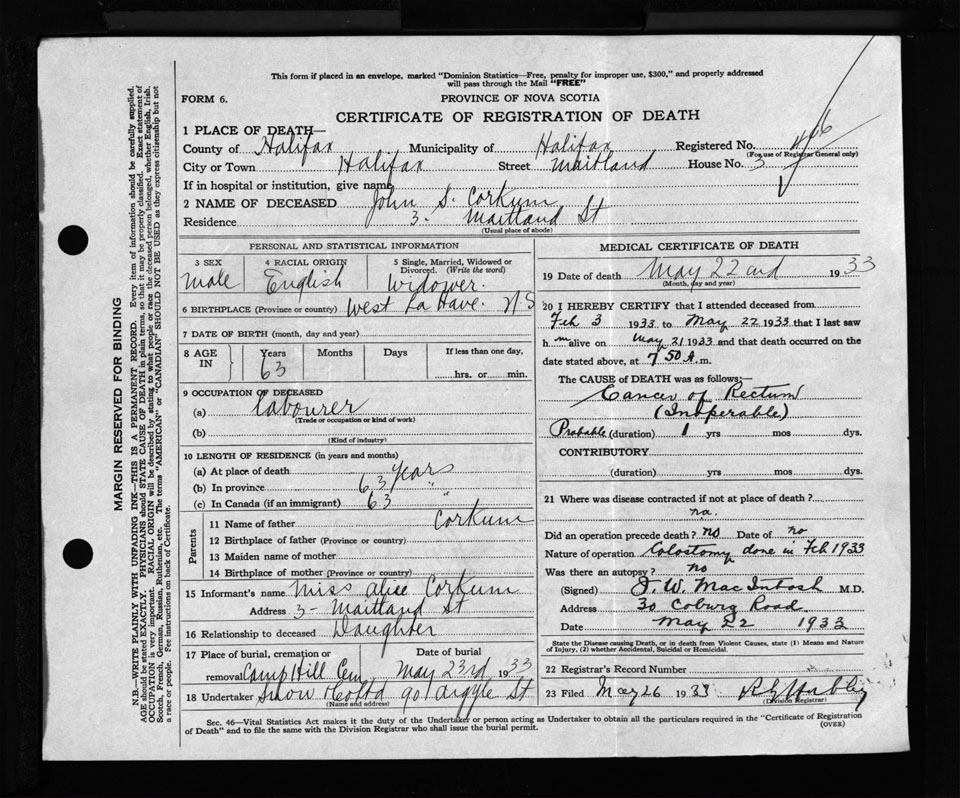 This form if placed in an envelope, marked "Dominion Statistics—Free, penalty for improper use, $300," and properly addressed
will pass through the Mail "FREE"
FORM 6.
PROVINCE OF NOVA SCOTIA
CERTIFICATE OF REGISTRATION OF DEATH
1 PLACE OF DEATH—
County of Halifax Municipality of Halifax Registered No.
(For use of Registrar General only)
City or Town Halifax Street Maitland House No. 3
If in hospital or institution, give name
2 NAME OF DECEASED John S. Corkum
Residence 3- Maitland St
(Usual place of abode)
PERSONAL AND STATISTICAL INFORMATION
3 SEX 4 RACIAL ORIGIN 5 Single, Married, Widowed or
Divorced. (Write the word)
male English Widower.
6 BIRTHPLACE (Province or country) West La Have. N.S
7 DATE OF BIRTH (month, day and year)
8 AGE IN Years Months Days If less than one day,
63 hrs. or min.
9 OCCUPATION OF DECEASED
(a) Labourer
(Trade or occupation or kind of work)
(b)
(Kind of industry)
10 LENGTH OF RESIDENCE (in years and months)
(a) At place of death
(b) In province 63 years
(c) In Canada (if an immigrant) 63 "
Parents
11 Name of father Corkum
12 Birthplace of father (Province or country)
13 Maiden name of mother
14 Birthplace of mother (Province or country)
15 Informant's name Miss Alice Corkum
Address 3- Maitland St
16 Relationship to deceased Daughter
17 Place of burial, cremation or Date of burial
removal Camp Hill Cem May 23rd 1933
18 Undertaker Snow & Co Ltd 90 Argyle St
(Name and address)
MEDICAL CERTIFICATE OF DEATH
19 Date of death May 22nd 1933
(Month, day and year)
20 I HEREBY CERTIFY that I attended deceased from
Feb 3 1933 to May 22 1933 that I last saw
h m alive on May 21 1933 and that death occurred on the
date stated above, at 7 50 A.m.
The CAUSE of DEATH was as follows:—
Cancer of Rectum
(Inoperable)
Probable (duration) 1 yrs mos dys.
CONTRIBUTORY
(duration) yrs mos dys.
21 Where was disease contracted if not at place of death?
na.
Did an operation precede death? no Date of no
Nature of operation Colostomy done in Feb 1933
Was there an autopsy? no
(Signed) J. W. MacIntosh M.D.
Address 30 Coburg Road
Date May 22 1933
State the Disease causing Death, or in death from Violent Causes, state (1) Means and
Nature of Injury, (2) whether Accidental, Suicidal or Homicidal.
22 Registrar's Record Number
23 Filed May 26 1933
(Division Registrar)
Sec. 46—Vital Statistics Act makes it the duty of the Undertaker or person acting as Undertaker to obtain all the particulars required in the "Certificate of Registration
of Death" and to file the same with the Division Registrar who shall issue the burial permit.
(OVER)
MARGIN RESERVED FOR BINDING
N.B.—WRITE PLAINLY WITH UNFADING INK—THIS IS A PERMANENT RECORD. Every item of information should be carefully supplied.
AGE should be stated EXACTLY. PHYSICIANS should STATE CAUSE OF DEATH in plain terms, so that it may be properly classified. Exact statement of
OCCUPATION is very important. RACIAL ORIGIN will be described by stating to what people or race the deceased person belonged, whether English, Irish,
Scotch, French, German, Russian, Ruthenian, etc. The terms "AMERICAN" or "CANADIAN" SHOULD NOT BE USED as they express citizenship but not
a race or people. Fee instructions on back of Certificate.